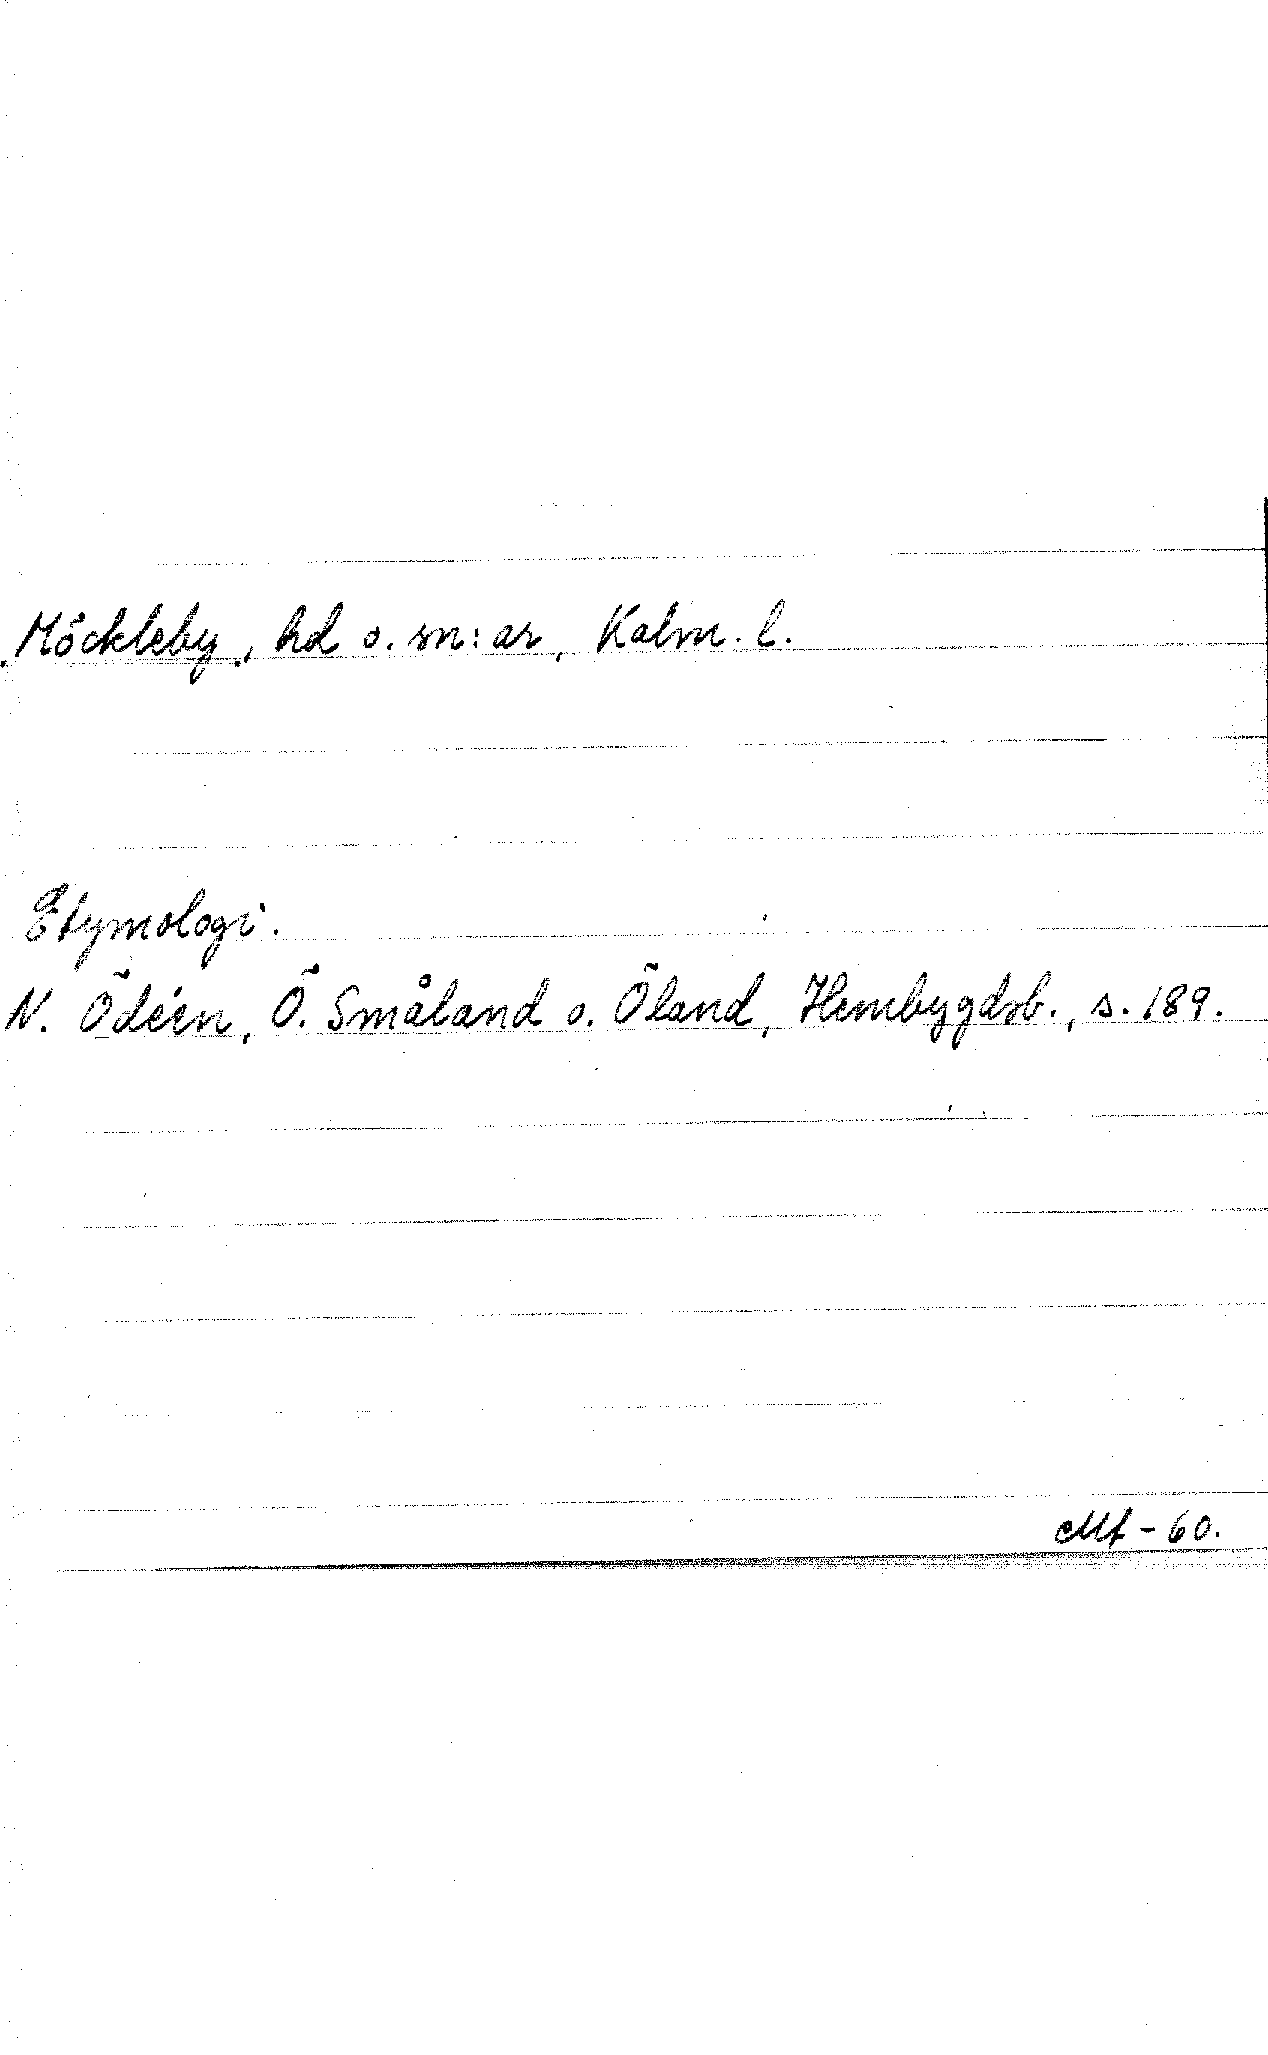 Möckleby, hd o. sn:ar, Kalm. l.
Etymologi.
N. Ödéen, Ö. Småland o. Öland, Hembygdsb., s. 189.
Mf - 60.